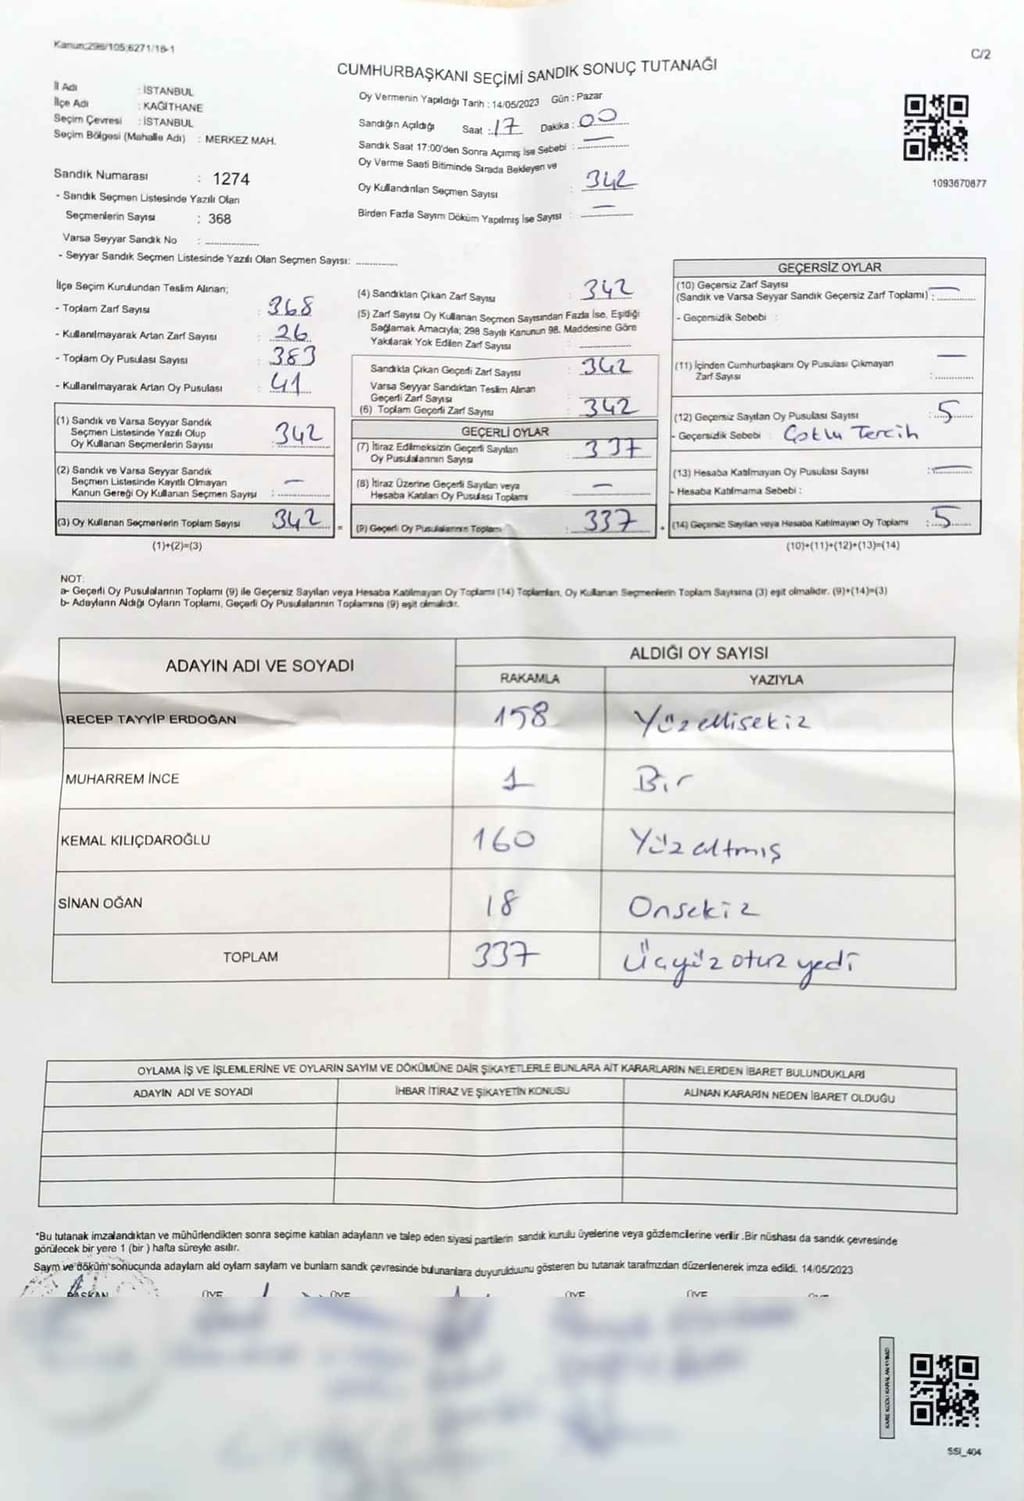 Kanun;298/105;6271/18-1
C/2
CUMHURBAŞKANI SEÇİMİ SANDIK SONUÇ TUTANAĞI
İl Adı : İSTANBUL
İlçe Adı : KAĞITHANE
Seçim Çevresi : İSTANBUL
Seçim Bölgesi (Mahalle Adı) : MERKEZ MAH.
Sandık Numarası : 1274
- Sandık Seçmen Listesinde Yazılı Olan
Seçmenlerin Sayısı : 368
Varsa Seyyar Sandık No : ...............
- Seyyar Sandık Seçmen Listesinde Yazılı Olan Seçmen Sayısı: ............
Oy Vermenin Yapıldığı Tarih : 14/05/2023 Gün : Pazar
Sandığın Açıldığı Saat : 17 Dakika : 00
Sandık Saat 17:00'den Sonra Açımış İse Sebebi : —
Oy Verme Saati Bitiminde Sırada Bekleyen ve
Oy Kullandırılan Seçmen Sayısı : 342
Birden Fazla Sayım Döküm Yapılmış İse Sayısı : —
1093670877
İlçe Seçim Kurulundan Teslim Alınan;
- Toplam Zarf Sayısı : 368
- Kullanılmayarak Artan Zarf Sayısı : 26
- Toplam Oy Pusulası Sayısı : 383
- Kullanılmayarak Artan Oy Pusulası : 41
(1) Sandık ve Varsa Seyyar Sandık
Seçmen Listesinde Yazılı Olup
Oy Kullanan Seçmenlerin Sayısı : 342
(2) Sandık ve Varsa Seyyar Sandık
Seçmen Listesinde Kayıtlı Olmayan
Kanun Gereği Oy Kullanan Seçmen Sayısı : —
(3) Oy Kullanan Seçmenlerin Toplam Sayısı : 342 =
(1)+(2)=(3)
(4) Sandıktan Çıkan Zarf Sayısı : 342
(5) Zarf Sayısı Oy Kullanan Seçmen Sayısından Fazla İse, Eşitliği
Sağlamak Amacıyla; 298 Sayılı Kanunun 98. Maddesine Göre
Yakılarak Yok Edilen Zarf Sayısı : ...............
Sandıkta Çıkan Geçerli Zarf Sayısı : 342
Varsa Seyyar Sandıktan Teslim Alınan
Geçerli Zarf Sayısı
(6) Toplam Geçerli Zarf Sayısı : 342
GEÇERLİ OYLAR
(7) İtiraz Edilmeksizin Geçerli Sayılan
Oy Pusulalarının Sayısı : 337
(8) İtiraz Üzerine Geçerli Sayılan veya
Hesaba Katılan Oy Pusulası Toplamı : —
(9) Geçerli Oy Pusulalarının Toplamı : 337 +
GEÇERSİZ OYLAR
(10) Geçersiz Zarf Sayısı
(Sandık ve Varsa Seyyar Sandık Geçersiz Zarf Toplamı) : —
- Geçersizlik Sebebi :
(11) İçinden Cumhurbaşkanı Oy Pusulası Çıkmayan
Zarf Sayısı : —
(12) Geçersiz Sayılan Oy Pusulası Sayısı : 5
- Geçersizlik Sebebi : Çoklu Tercih
(13) Hesaba Katılmayan Oy Pusulası Sayısı : —
- Hesaba Katılmama Sebebi :
(14) Geçersiz Sayılan veya Hesaba Katılmayan Oy Toplamı : 5
(10)+(11)+(12)+(13)=(14)
NOT:
a- Geçerli Oy Pusulalarının Toplamı (9) ile Geçersiz Sayılan veya Hesaba Katılmayan Oy Toplamı (14) Toplamları, Oy Kullanan Seçmenlerin Toplam Sayısına (3) eşit olmalıdır. (9)+(14)=(3)
b- Adayların Aldığı Oyların Toplamı, Geçerli Oy Pusulalarının Toplamına (9) eşit olmalıdır.
ADAYIN ADI VE SOYADI ALDIĞI OY SAYISI
RAKAMLA YAZIYLA
RECEP TAYYİP ERDOĞAN 158 Yüzellisekiz
MUHARREM İNCE 1 Bir
KEMAL KILIÇDAROĞLU 160 Yüzaltmış
SİNAN OĞAN 18 Onsekiz
TOPLAM 337 Üçyüzotuzyedi
OYLAMA İŞ VE İŞLEMLERİNE VE OYLARIN SAYIM VE DÖKÜMÜNE DAİR ŞİKAYETLERLE BUNLARA AİT KARARLARIN NELERDEN İBARET BULUNDUKLARI
ADAYIN ADI VE SOYADI İHBAR İTİRAZ VE ŞİKAYETİN KONUSU ALINAN KARARIN NEDEN İBARET OLDUĞU
*Bu tutanak imzalandıktan ve mühürlendikten sonra seçime katılan adayların ve talep eden siyasi partilerin sandık kurulu üyelerine veya gözlemcilerine verilir .Bir nüshası da sandık çevresinde
görülecek bir yere 1 (bir ) hafta süreyle asılır.
Sayım ve döküm sonucunda adayların ald oyların sayıları ve bunların sandk çevresinde bulunanlara duyurulduunu gösteren bu tutanak tarafmzdan düzenlenerek imza edildi. 14/05/2023
BAŞKAN ÜYE ÜYE ÜYE ÜYE
SSI_404